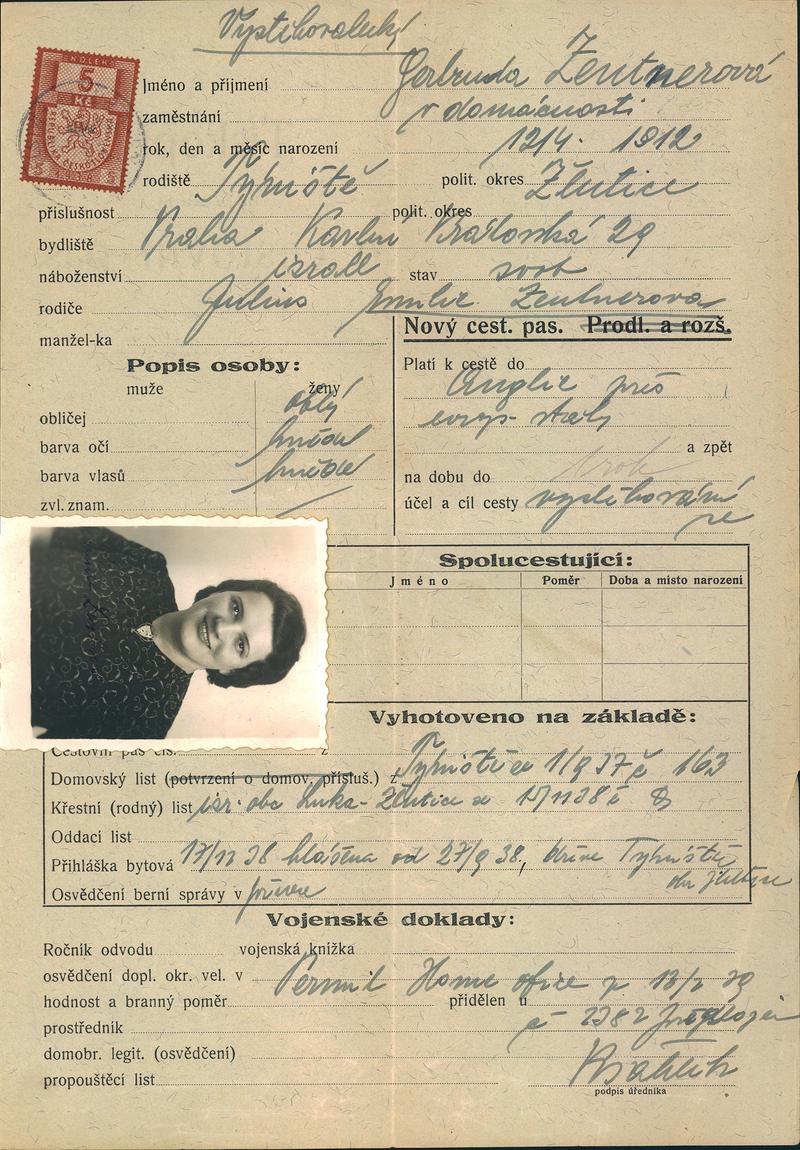 Vystěhovalecký
KOLEK
5
Kč
Jméno a příjmení Gertruda Zentnerová
zaměstnání v domácnosti
rok, den a měsíc narození 12/4. 1912
rodiště Tyhniště polit. okres Žlutice
příslušnost polit. okres
bydliště Praha Karlín 29
náboženství israel stav svob
rodiče Julius Emilie Zentnerova
manžel-ka
Nový cest. pas. Prodl. a rozš.
Popis osoby:
muže ženy
obličej oblý
barva očí hnědé
barva vlasů hnědé
zvl. znam.
Platí k cestě do
Anglie přes
evrop. staty
a zpět
na dobu do 1 rok
účel a cíl cesty vystěhování
se
Spolucestující:
Jméno Poměr Doba a místo narození
Vyhotoveno na základě:
Cestovní pas čís. z
Domovský list (potvrzení o domov. přísluš.) z Tyhniště 1/9 37 č 163
Křestní (rodný) list isr. obc Luka-Žlutice 38 č 8
Oddací list
Přihláška bytová 17/11 38 hlášena od 27/9 38, dříve Tyhniště
Osvědčení berní správy v
Vojenské doklady:
Ročník odvodu vojenská knížka
osvědčení dopl. okr. vel. v Permit Home office z 13/2 39
hodnost a branný poměr přidělen u
č 2382
prostředník
domobr. legit. (osvědčení)
propouštěcí list
podpis úředníka